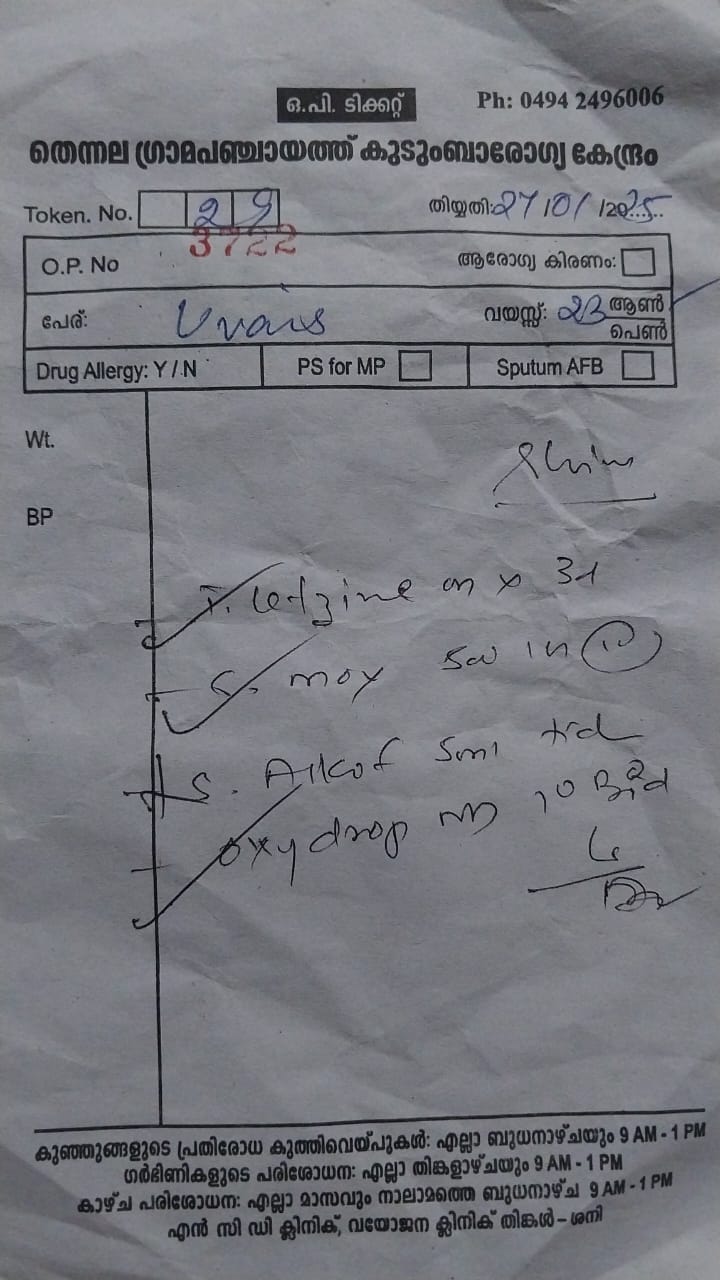 ഒ.പി. ടിക്കറ്റ് Ph: 0494 2496006
തെന്നല ഗ്രാമപഞ്ചായത്ത് കുടുംബാരോഗ്യ കേന്ദ്രം
Token. No. 29 തിയ്യതി: 27/10/2025
3722
O.P. No ആരോഗ്യ കിരണം:
പേര്: Uvais വയസ്സ്: 23 ആൺ
പെൺ
Drug Allergy: Y / N PS for MP Sputum AFB
Wt.
BP
T. Cetzine on x 3d
C. moy
S. Alkof 5ml tid
oxydrop 10
കുഞ്ഞുങ്ങളുടെ പ്രതിരോധ കുത്തിവെയ്പുകൾ: എല്ലാ ബുധനാഴ്ചയും 9 AM - 1 PM
ഗർഭിണികളുടെ പരിശോധന: എല്ലാ തിങ്കളാഴ്ചയും 9 AM - 1 PM
കാഴ്ച പരിശോധന: എല്ലാ മാസവും നാലാമത്തെ ബുധനാഴ്ച 9 AM - 1 PM
എൻ സി ഡി ക്ലിനിക്, വയോജന ക്ലിനിക് തിങ്കൾ – ശനി